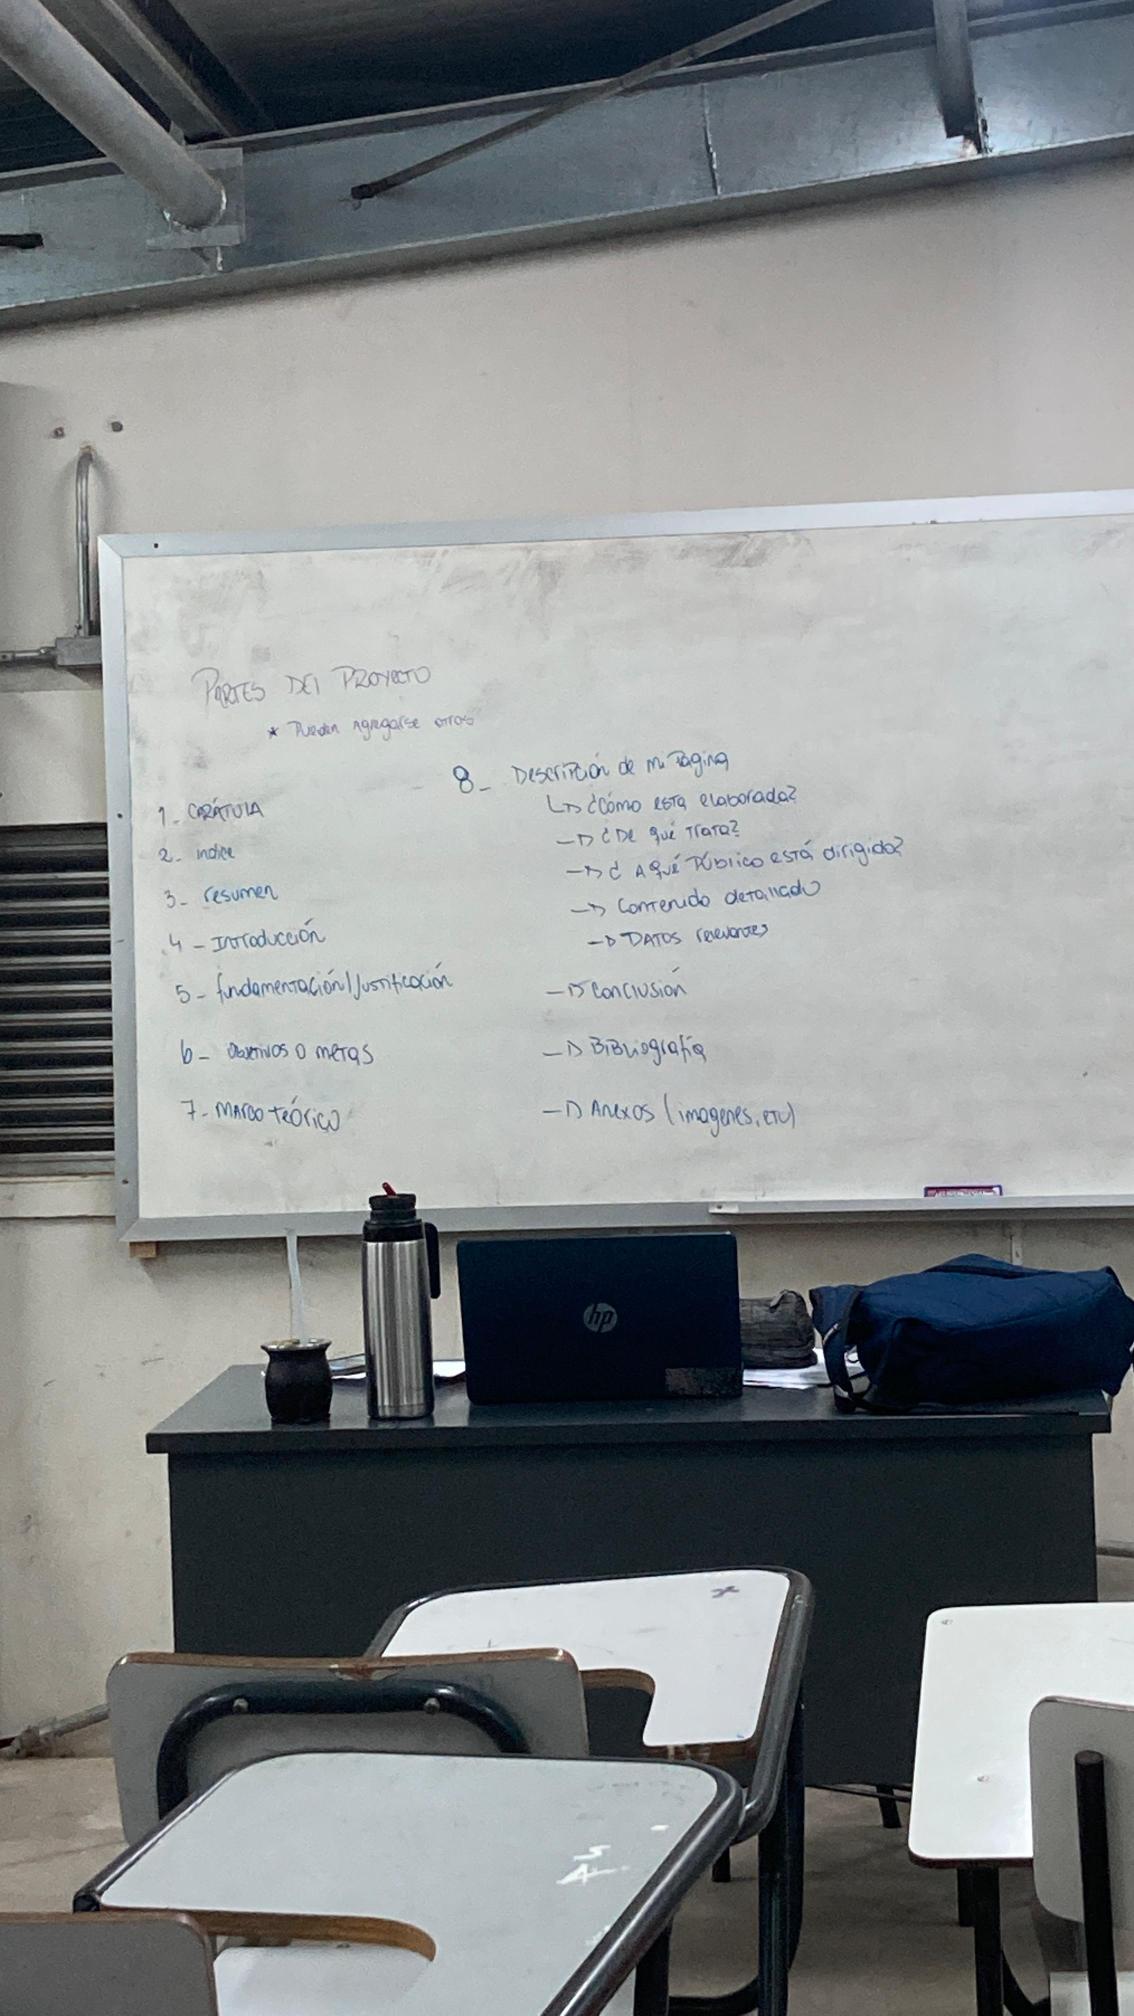 PARTES DEl PROYECTO
* Pueden Agregarse otros
1_ CARÁTULA
2_ indice
3_ resumen
4_ Introducción
5_ fundamentación/Justificación
6_ objetivos o metas
7_ Marco teórico
8_ Descripción de mi Página
¿Cómo esta elaborada?
¿De qué trata?
¿A qué Público está dirigido?
Contenido detallado
DATOS relevantes
Conclusión
Bibliografía
Anexos (imagenes, etc)
hp